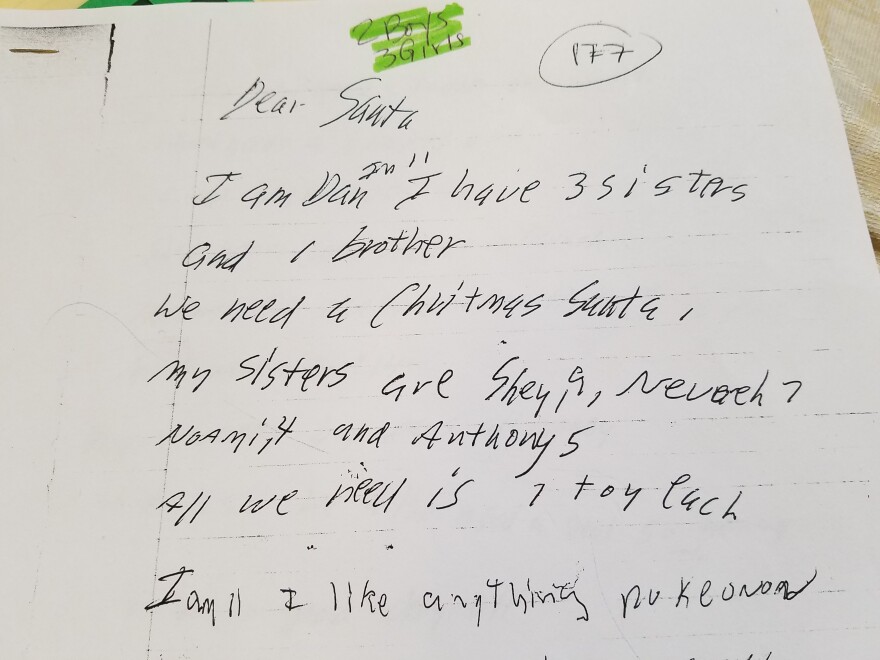 2 Boys
3 Girls
177
Dear Santa
Im 11
I am Dan I have 3 sisters
and 1 brother
We need a Chritmas Santa,
my sisters are Shey,9, Nevaeh 7
NOAmi,4 and Anthony 5
All we need is 1 toy each
I am 11 I like anything